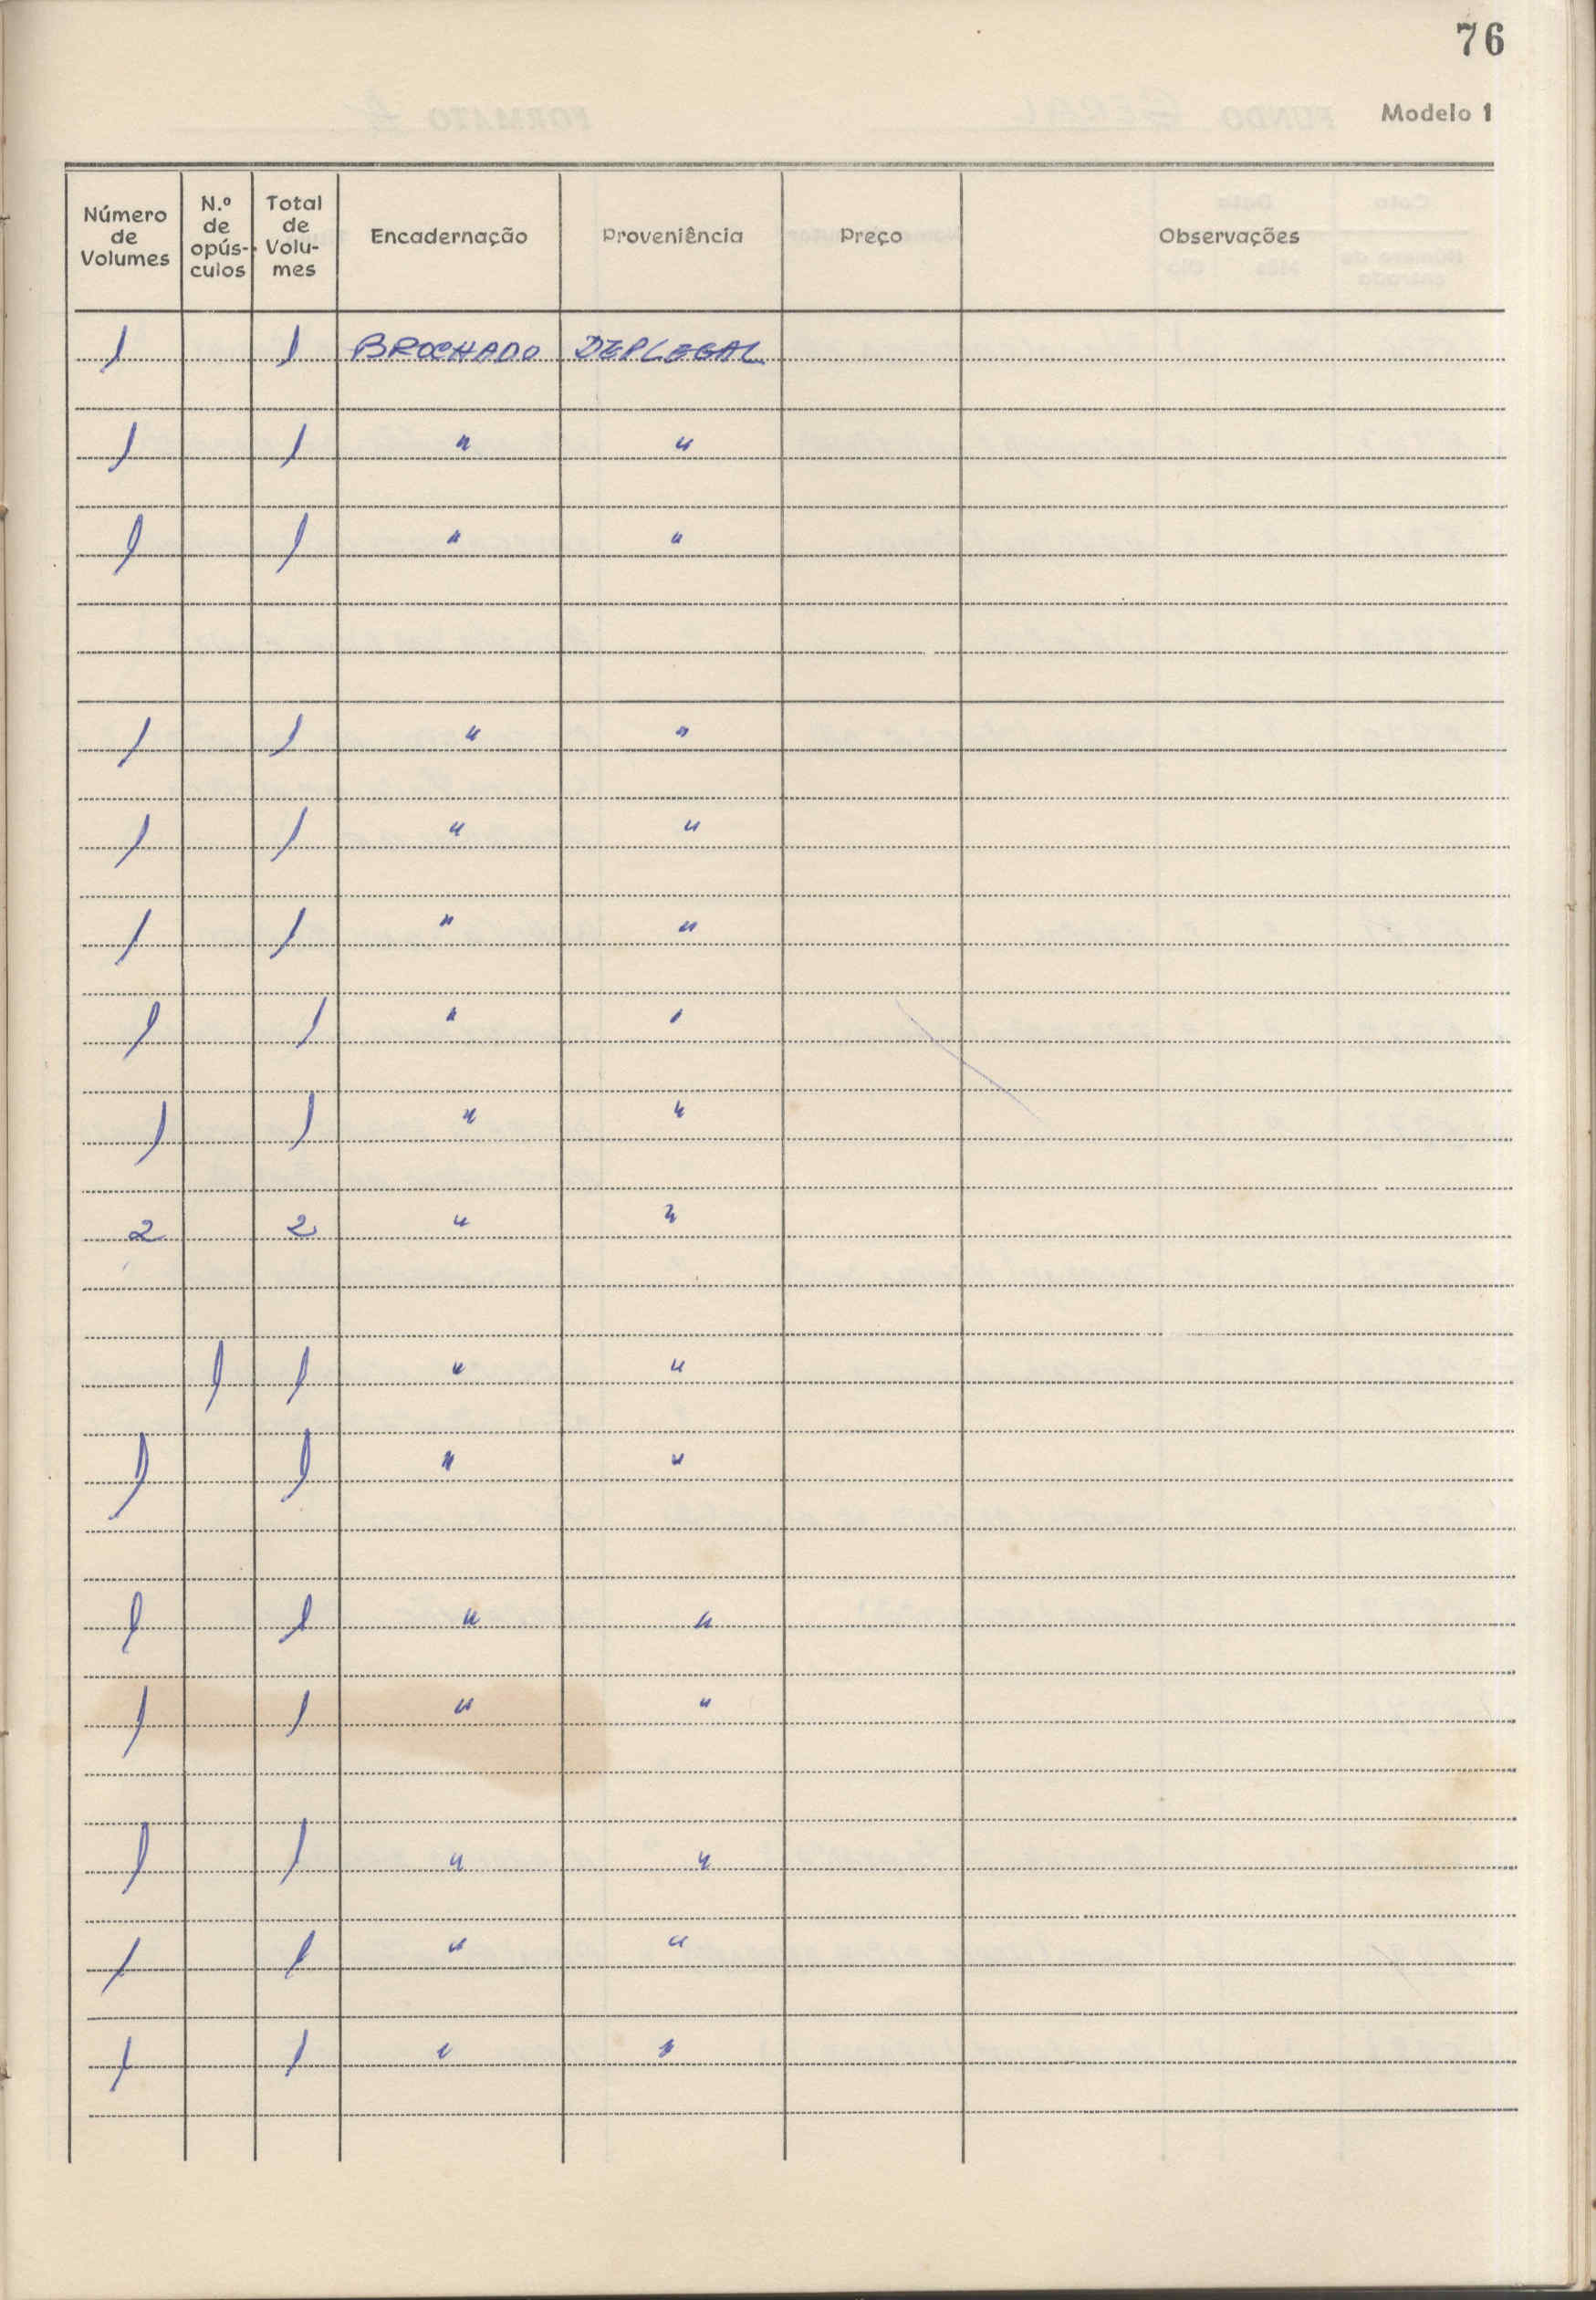 76
Modelo 1
Número de Volumes | N.º de opús-culos | Total de Volu-mes | Encadernação | Proveniência | Preço | Observações
1 | | 1 | BROCHADO | DEPLEGAL
1 | | 1 | " | "
1 | | 1 | " | "
1 | | 1 | " | "
1 | | 1 | " | "
1 | | 1 | " | "
1 | | 1 | " | "
1 | | 1 | " | "
2 | | 2 | " | "
| 1 | 1 | " | "
1 | | 1 | " | "
1 | | 1 | " | "
1 | | 1 | " | "
1 | | 1 | " | "
1 | | 1 | " | "
1 | | 1 | " | "